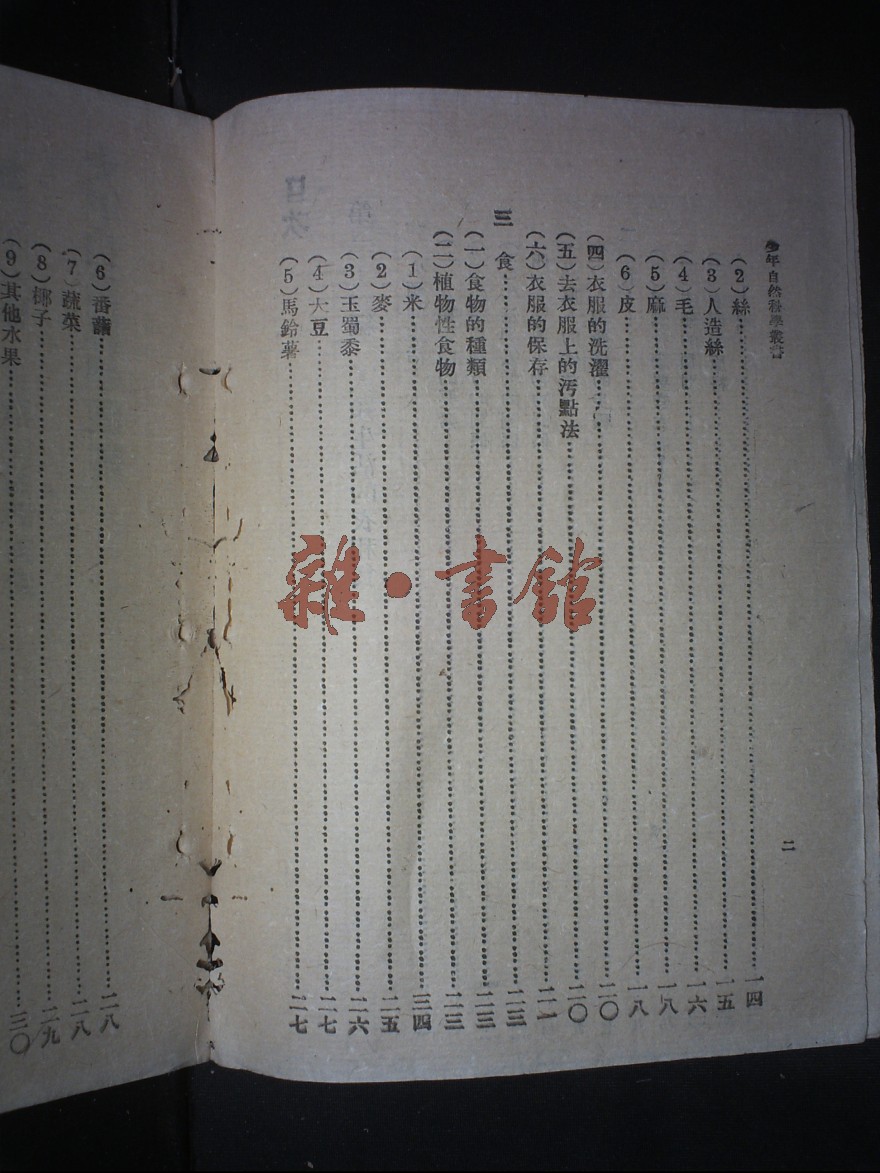 少年自然科學叢書
二
(2)絲……一四
(3)人造絲……一五
(4)毛……一六
(5)麻……一八
(6)皮……一八
(四)衣服的洗濯……二〇
(五)去衣服上的汚點法……二〇
(六)衣服的保存……二一
三 食……二三
(一)食物的種類……二三
(二)植物性食物……二三
(1)米……三四
(2)麥……二五
(3)玉蜀黍……二六
(4)大豆……二七
(5)馬鈴薯……二七
(6)番藷……二八
(7)蔬菜……二八
(8)椰子……二九
(9)其他水果……三〇
雜·書館